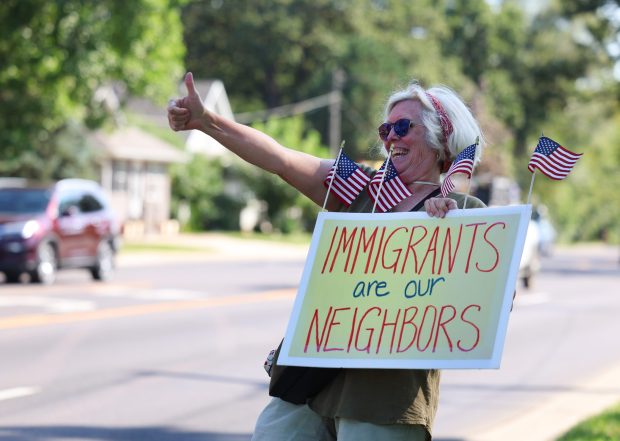 IMMIGRANTS
are our
NEIGHBORS